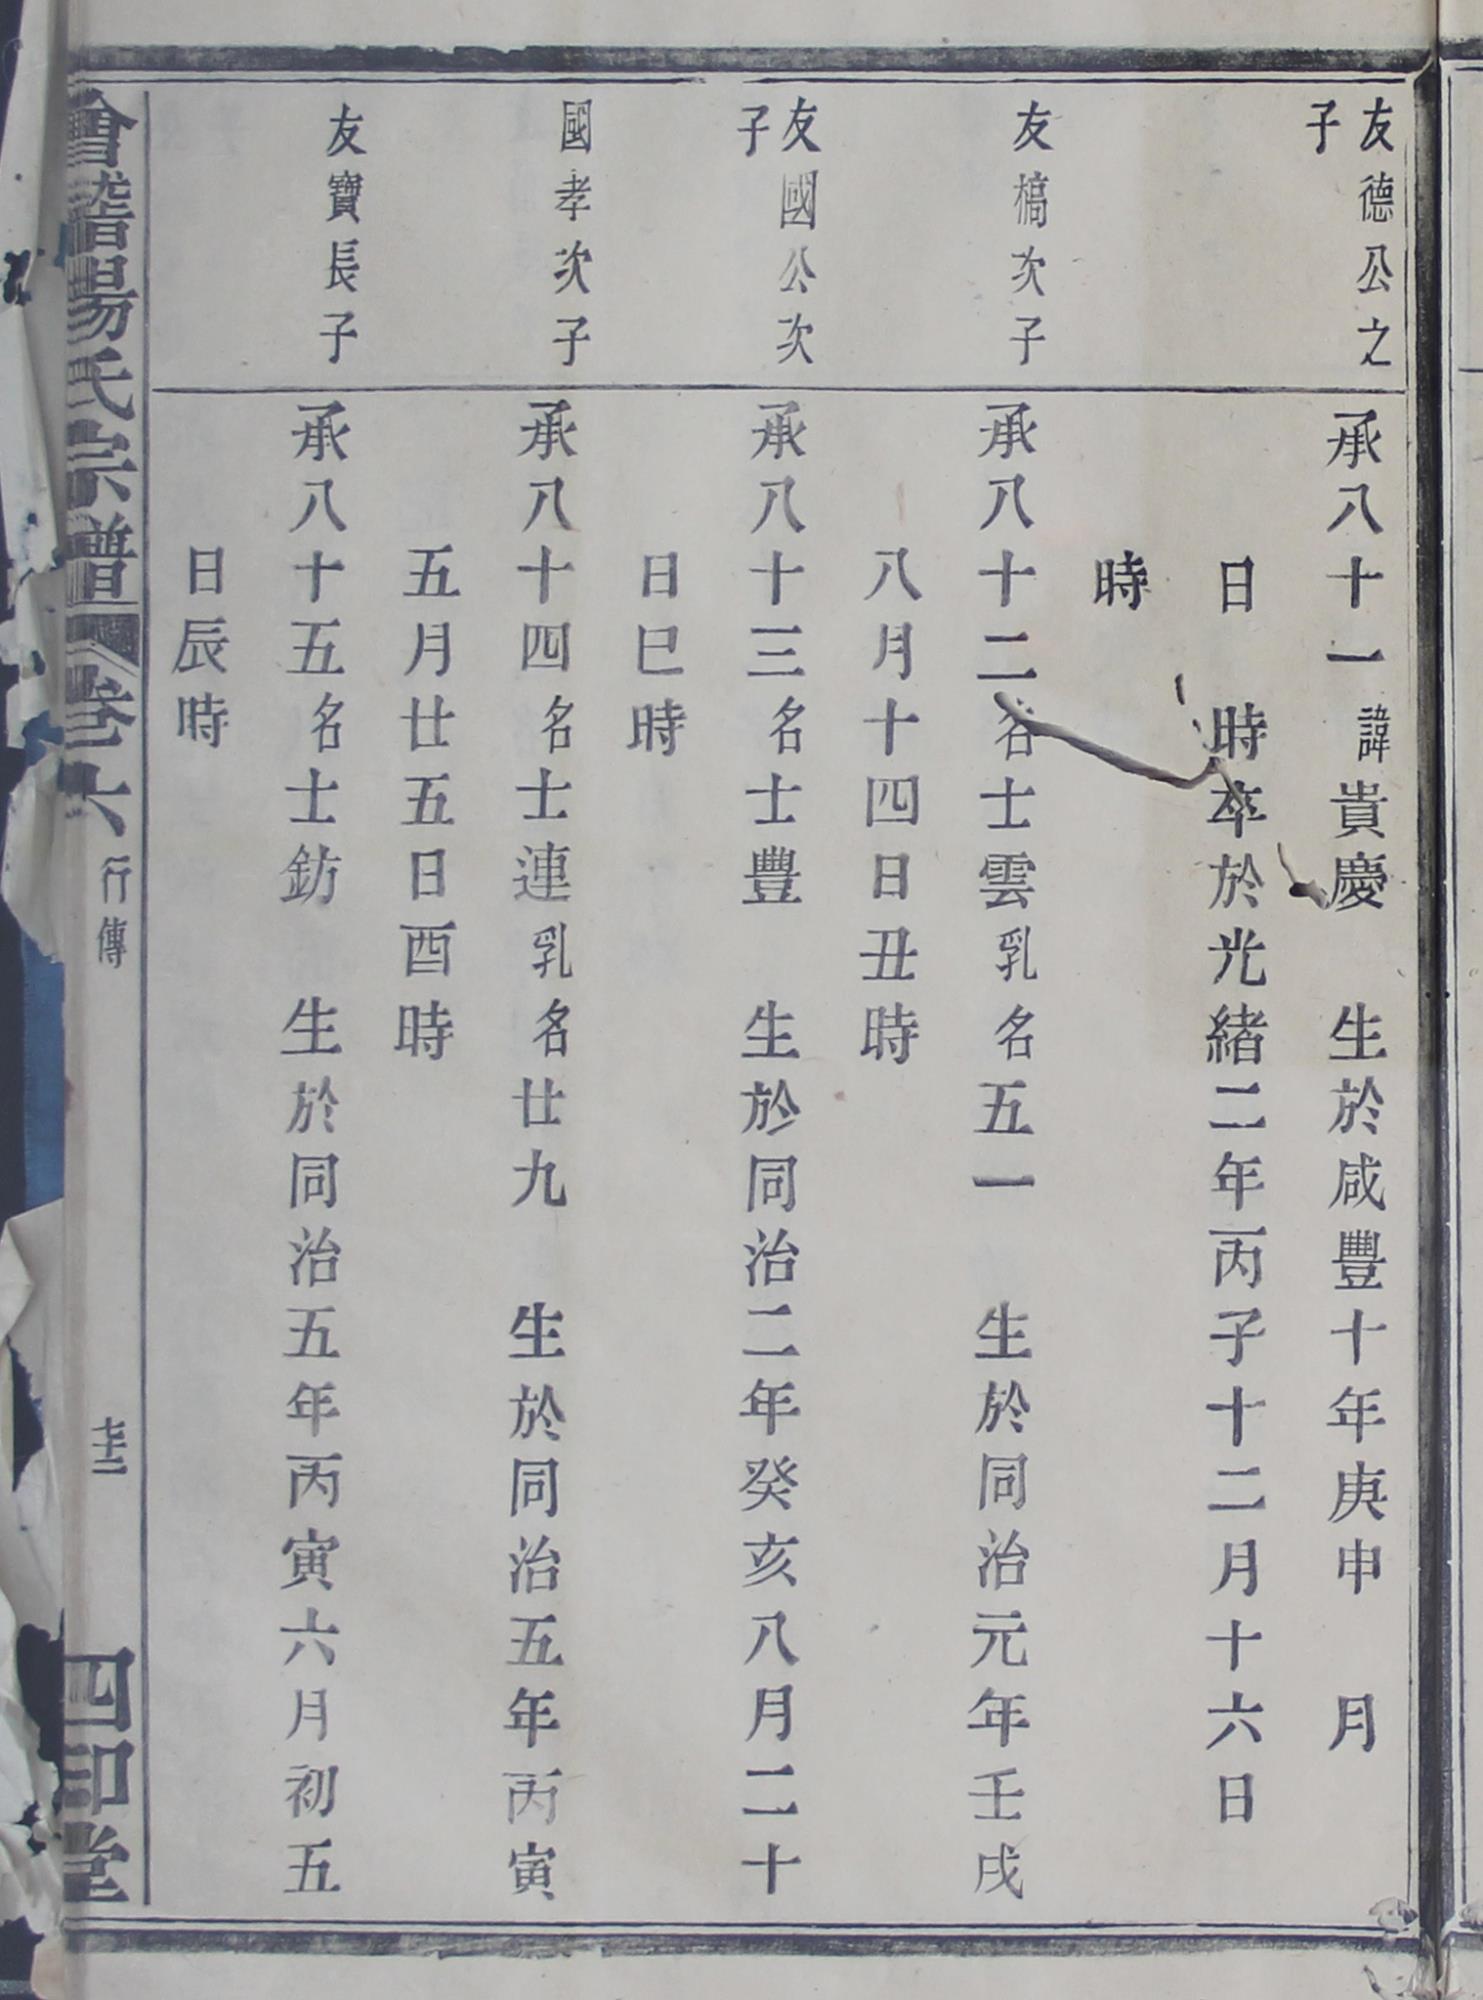 友德公之
子
承八十一諱貴慶 生於咸豐十年庚申 月
日 時卒於光緒二年丙子十二月十六日
時
友槁次子
承八十二名士雲乳名五一 生於同治元年壬戌
八月十四日丑時
友國公次
子
承八十三名士豐 生於同治二年癸亥八月二十
日巳時
國孝次子
承八十四名士連乳名廿九 生於同治五年丙寅
五月廿五日酉時
友寶長子
承八十五名士鈁 生於同治五年丙寅六月初五
日辰時
會稽暘氏宗譜 卷六 行傳 七十三 四印堂